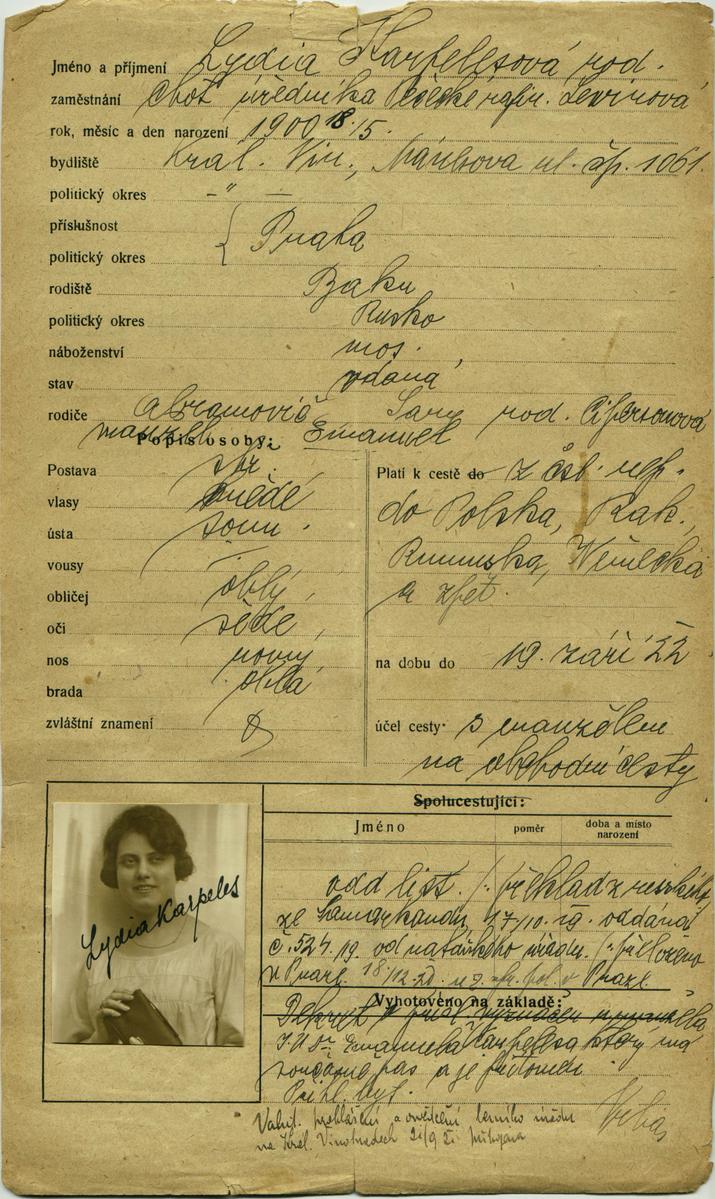 Jméno a příjmení Lydia Karpelesová rod.
zaměstnání choť úředníka Levinová
rok, měsíc a den narození 1900 18/5.
bydliště Král. Vin., ul. čp. 1061.
politický okres - " -
příslušnost
politický okres Praha
rodiště Baku
politický okres Rusko
náboženství mos.
stav vdaná
rodiče Abramovič Sara rod.
manžel Emanuel
Popis osoby:
Postava stř.
vlasy hnědé
ústa soum.
vousy –
obličej oblý,
oči šedé,
nos rovný,
brada oblá
zvláštní znamení
Platí k cestě do z čsl. rep.
do Polska, Rak.,
Rumunska, Německa
a zpět.
na dobu do 19. září 22
účel cesty: s manželem
na obchodní cesty
Spolucestující:
Jméno poměr doba a místo narození
Lydia Karpeles
odd. list. /: překlad z ruského
ze 17/10. 19. oddána
č. 524. 19. od :/ přeloženo
v Praze 18/12. 20. v Praze
Vyhotoveno na základě:
Dekret
JUDr Emanuela Karpelesa který má
současně pas a je
Přihl. byt.
a
na Král. Vinohradech